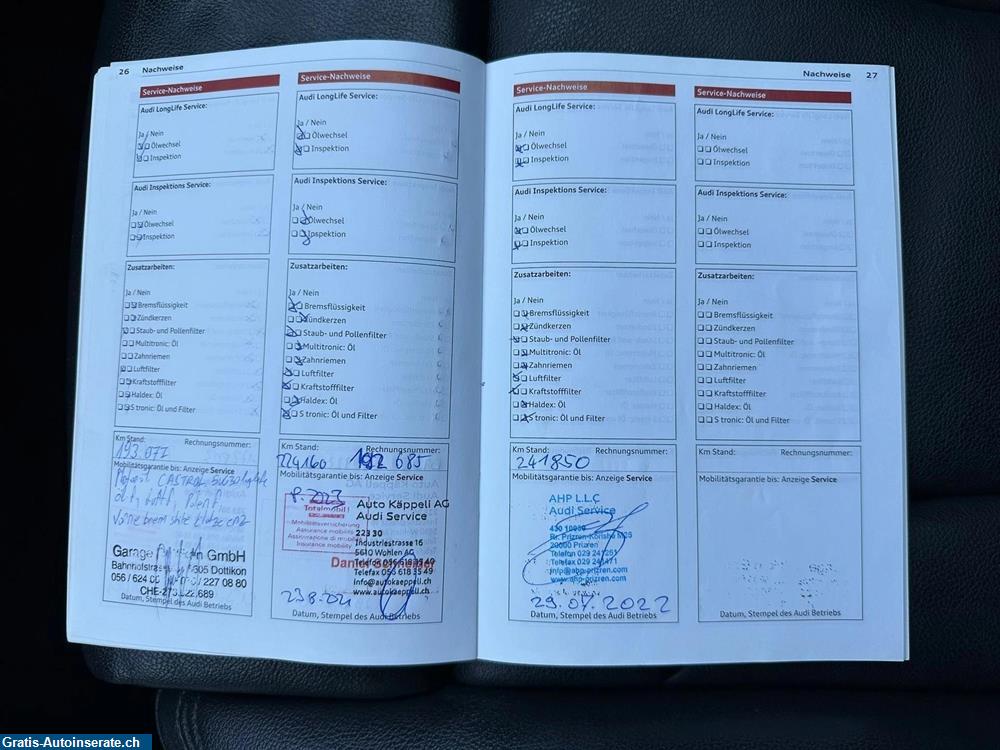 26 Nachweise
Service-Nachweise
Audi LongLife Service:
Ja / Nein
Ölwechsel
Inspektion
Audi Inspektions Service:
Ja / Nein
Ölwechsel
Inspektion
Zusatzarbeiten:
Ja / Nein
Bremsflüssigkeit
Zündkerzen
Staub- und Pollenfilter
Multitronic: Öl
Zahnriemen
Luftfilter
Kraftstofffilter
Haldex: Öl
S tronic: Öl und Filter
Km Stand: Rechnungsnummer:
193.077
Mobilitätsgarantie bis: Anzeige Service
CASTROL
Garage GmbH
Bahnhofstrasse 5605 Dottikon
056 / 624 227 08 80
Datum, Stempel des Audi Betriebs
Service-Nachweise
Audi LongLife Service:
Ja / Nein
Ölwechsel
Inspektion
Audi Inspektions Service:
Ja / Nein
Ölwechsel
Inspektion
Zusatzarbeiten:
Ja / Nein
Bremsflüssigkeit
Zündkerzen
Staub- und Pollenfilter
Multitronic: Öl
Zahnriemen
Luftfilter
Kraftstofffilter
Haldex: Öl
S tronic: Öl und Filter
Km Stand: Rechnungsnummer:
224160 192 685
Mobilitätsgarantie bis: Anzeige Service
8. 2023
Totalmobil!
Mobilitätsversicherung
Assurance mobilité
Assicurazione di mobilità
Insurance mobility
Auto Käppeli AG
Audi Service
223 30
Industriestrasse 16
5610 Wohlen AG
Telefon 056 618 39 49
Telefax 056 618 35 49
info@autokaeppeli.ch
www.autokaeppeli.ch
Datum, Stempel des Audi Betriebs
Nachweise 27
Service-Nachweise
Audi LongLife Service:
Ja / Nein
Ölwechsel
Inspektion
Audi Inspektions Service:
Ja / Nein
Ölwechsel
Inspektion
Zusatzarbeiten:
Ja / Nein
Bremsflüssigkeit
Zündkerzen
Staub- und Pollenfilter
Multitronic: Öl
Zahnriemen
Luftfilter
Kraftstofffilter
Haldex: Öl
S tronic: Öl und Filter
Km Stand: Rechnungsnummer:
241850
Mobilitätsgarantie bis: Anzeige Service
AHP L.L.C
Audi Service
Rr. Prizren-Korishe M25
20000 Prizren
Telefon 029 241251
Telefax 029 241471
info@ahp-prizren.com
www.ahp-prizren.com
29.07.2022
Datum, Stempel des Audi Betriebs
Service-Nachweise
Audi LongLife Service:
Ja / Nein
Ölwechsel
Inspektion
Audi Inspektions Service:
Ja / Nein
Ölwechsel
Inspektion
Zusatzarbeiten:
Ja / Nein
Bremsflüssigkeit
Zündkerzen
Staub- und Pollenfilter
Multitronic: Öl
Zahnriemen
Luftfilter
Kraftstofffilter
Haldex: Öl
S tronic: Öl und Filter
Km Stand: Rechnungsnummer:
Mobilitätsgarantie bis: Anzeige Service
Datum, Stempel des Audi Betriebs
Gratis-Autoinserate.ch